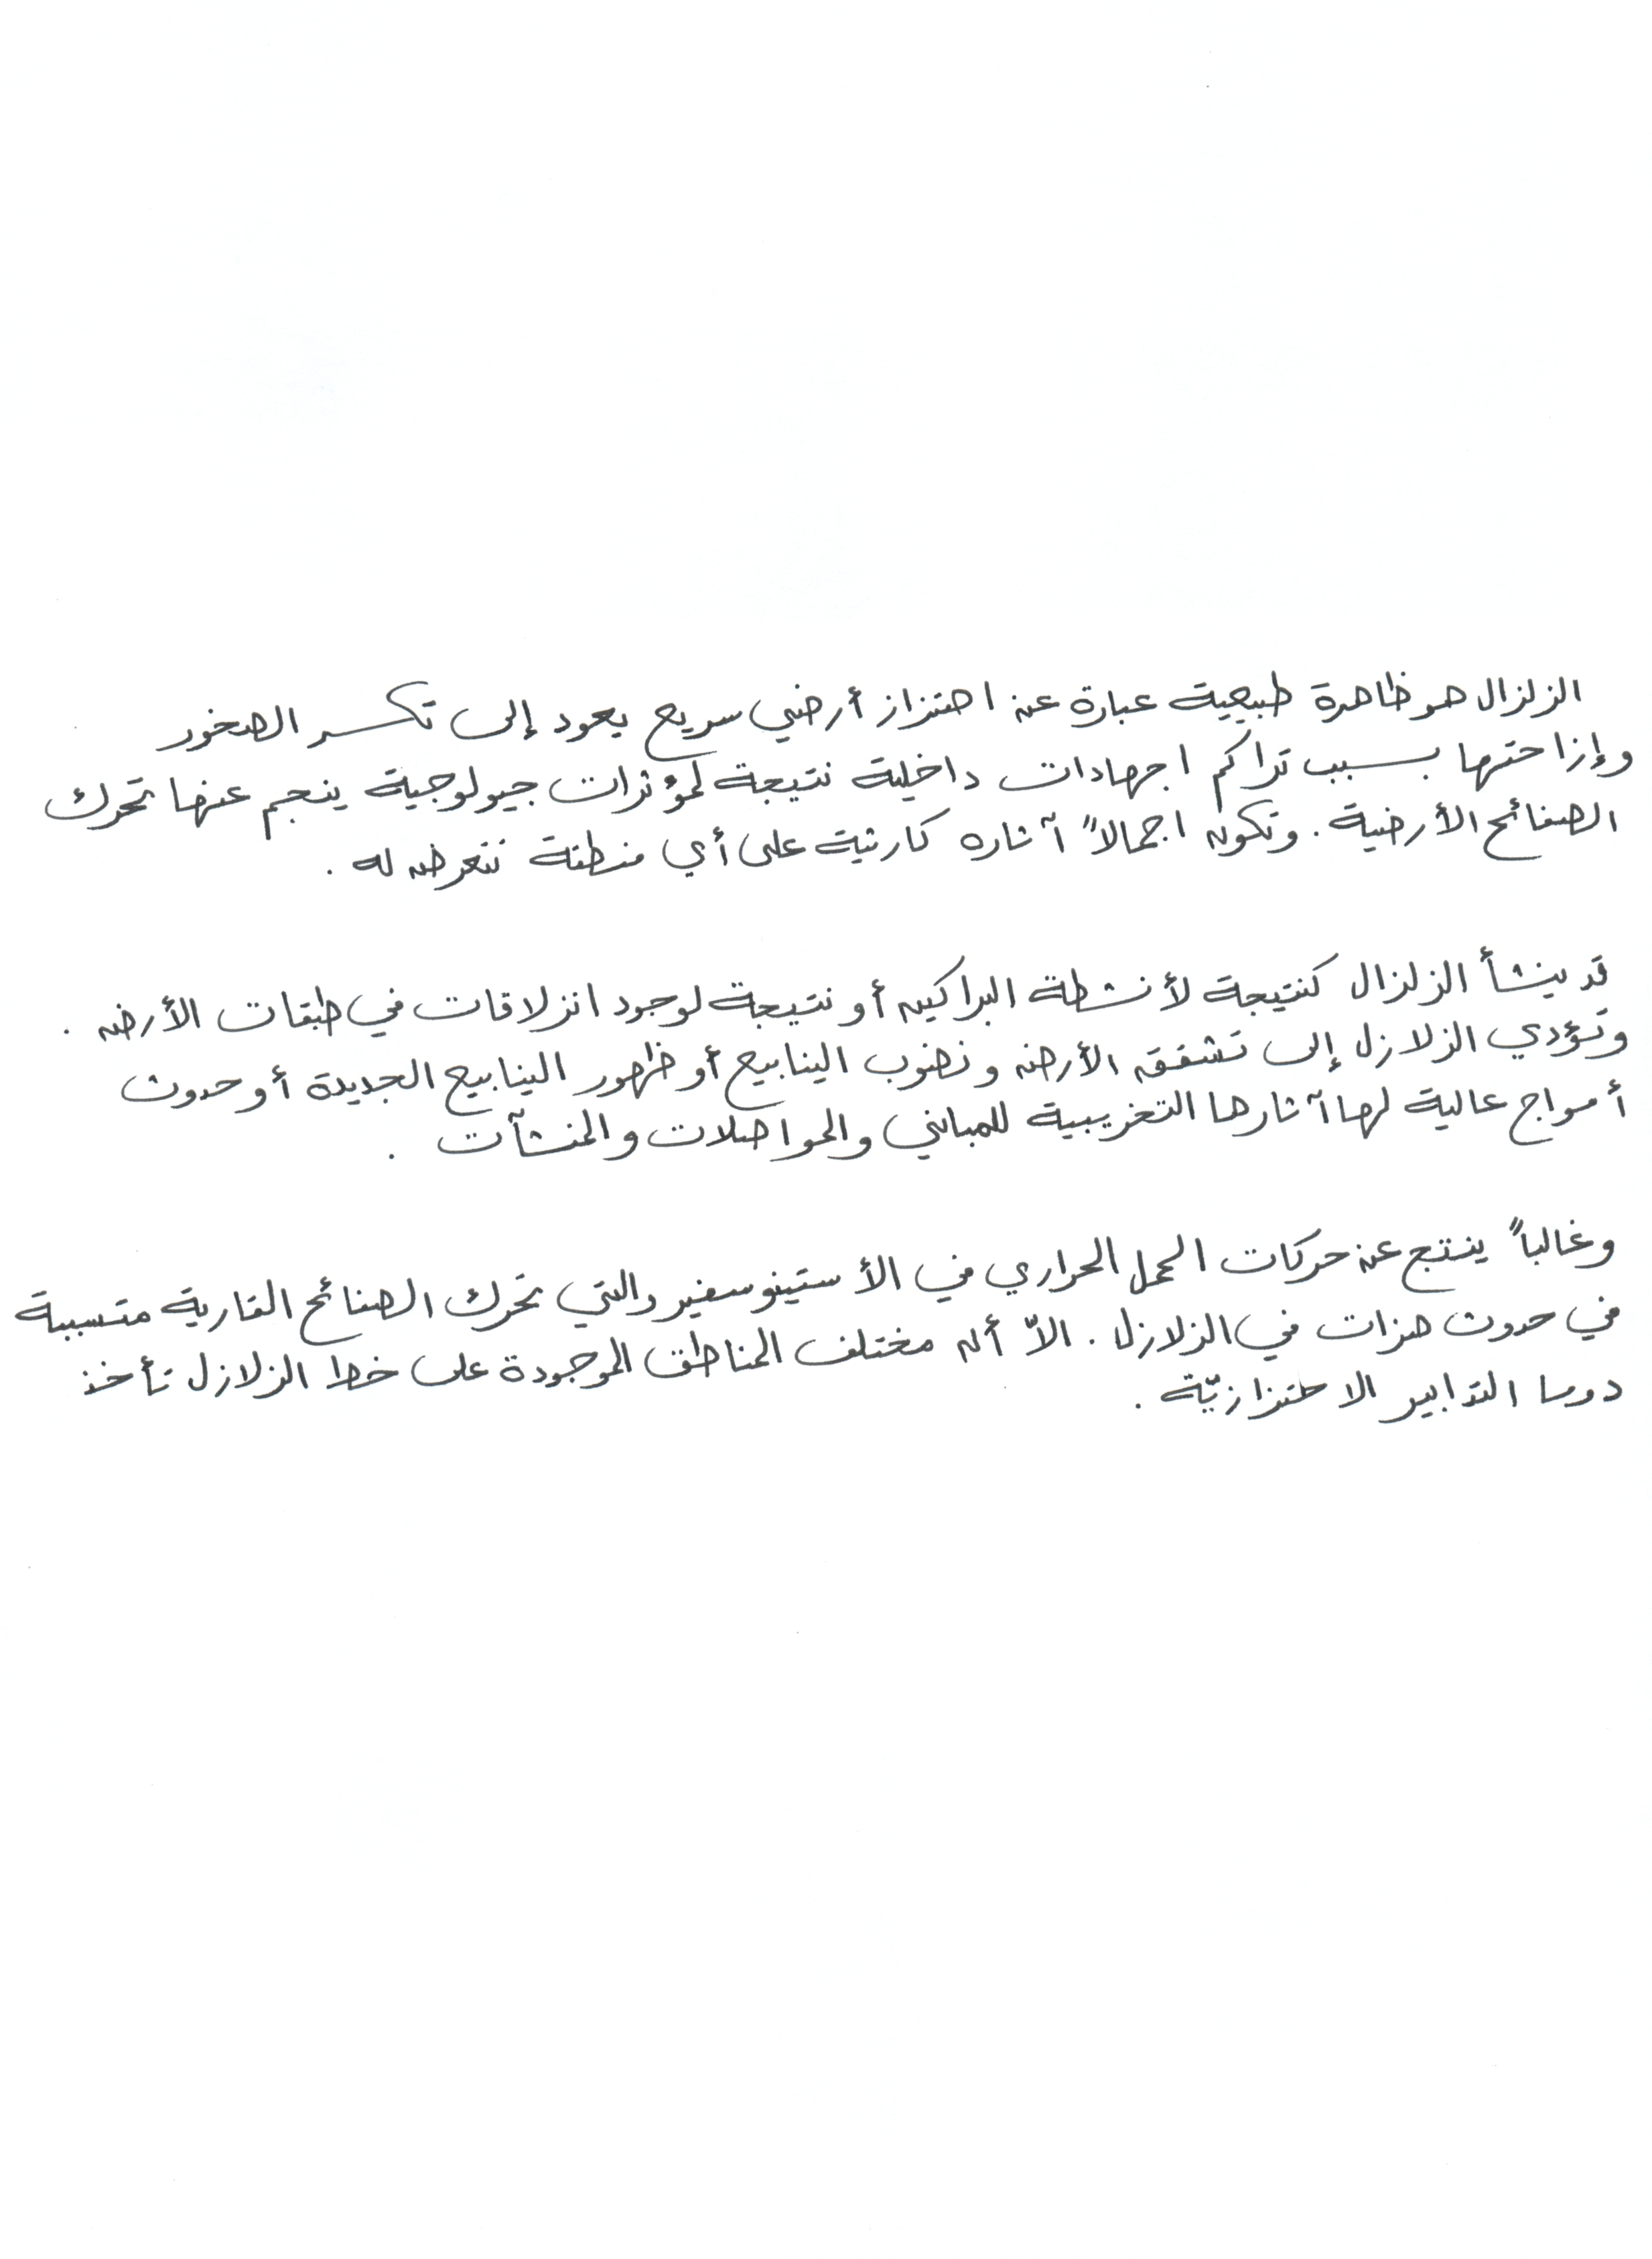 الزلزال هو ظاهرة طبيعية عبارة عن اهتزاز أرضي سريع يعود إلى تكسر الصخور
وإزاحتها بسبب تراكم اجهادات داخلية نتيجة لمؤثرات جيولوجية ينجم عنها تحرك
الصفائح الأرضية. وتكون اجمالاً آثاره كارثية على أي منطقة تتعرض له .
قد ينشأ الزلزال كنتيجة لأنشطة البراكين أو نتيجة لوجود انزلاقات في طبقات الأرض .
وتؤدي الزلازل إلى تشقق الأرض ونضوب الينابيع أو ظهور الينابيع الجديدة أو حدوث
أمواج عالية لها آثارها التخريبية للمباني والمواصلات والمنشآت .
وغالباً ينتج عن حركات الحمل الحراري في الأستينوسفير والتي تحرك الصفائح القارية متسببة
في حدوث هزات في الزلازل . الاّ أن مختلف المناطق الموجودة على خط الزلازل تأخذ
دوما التدابير الاحترازيّة .